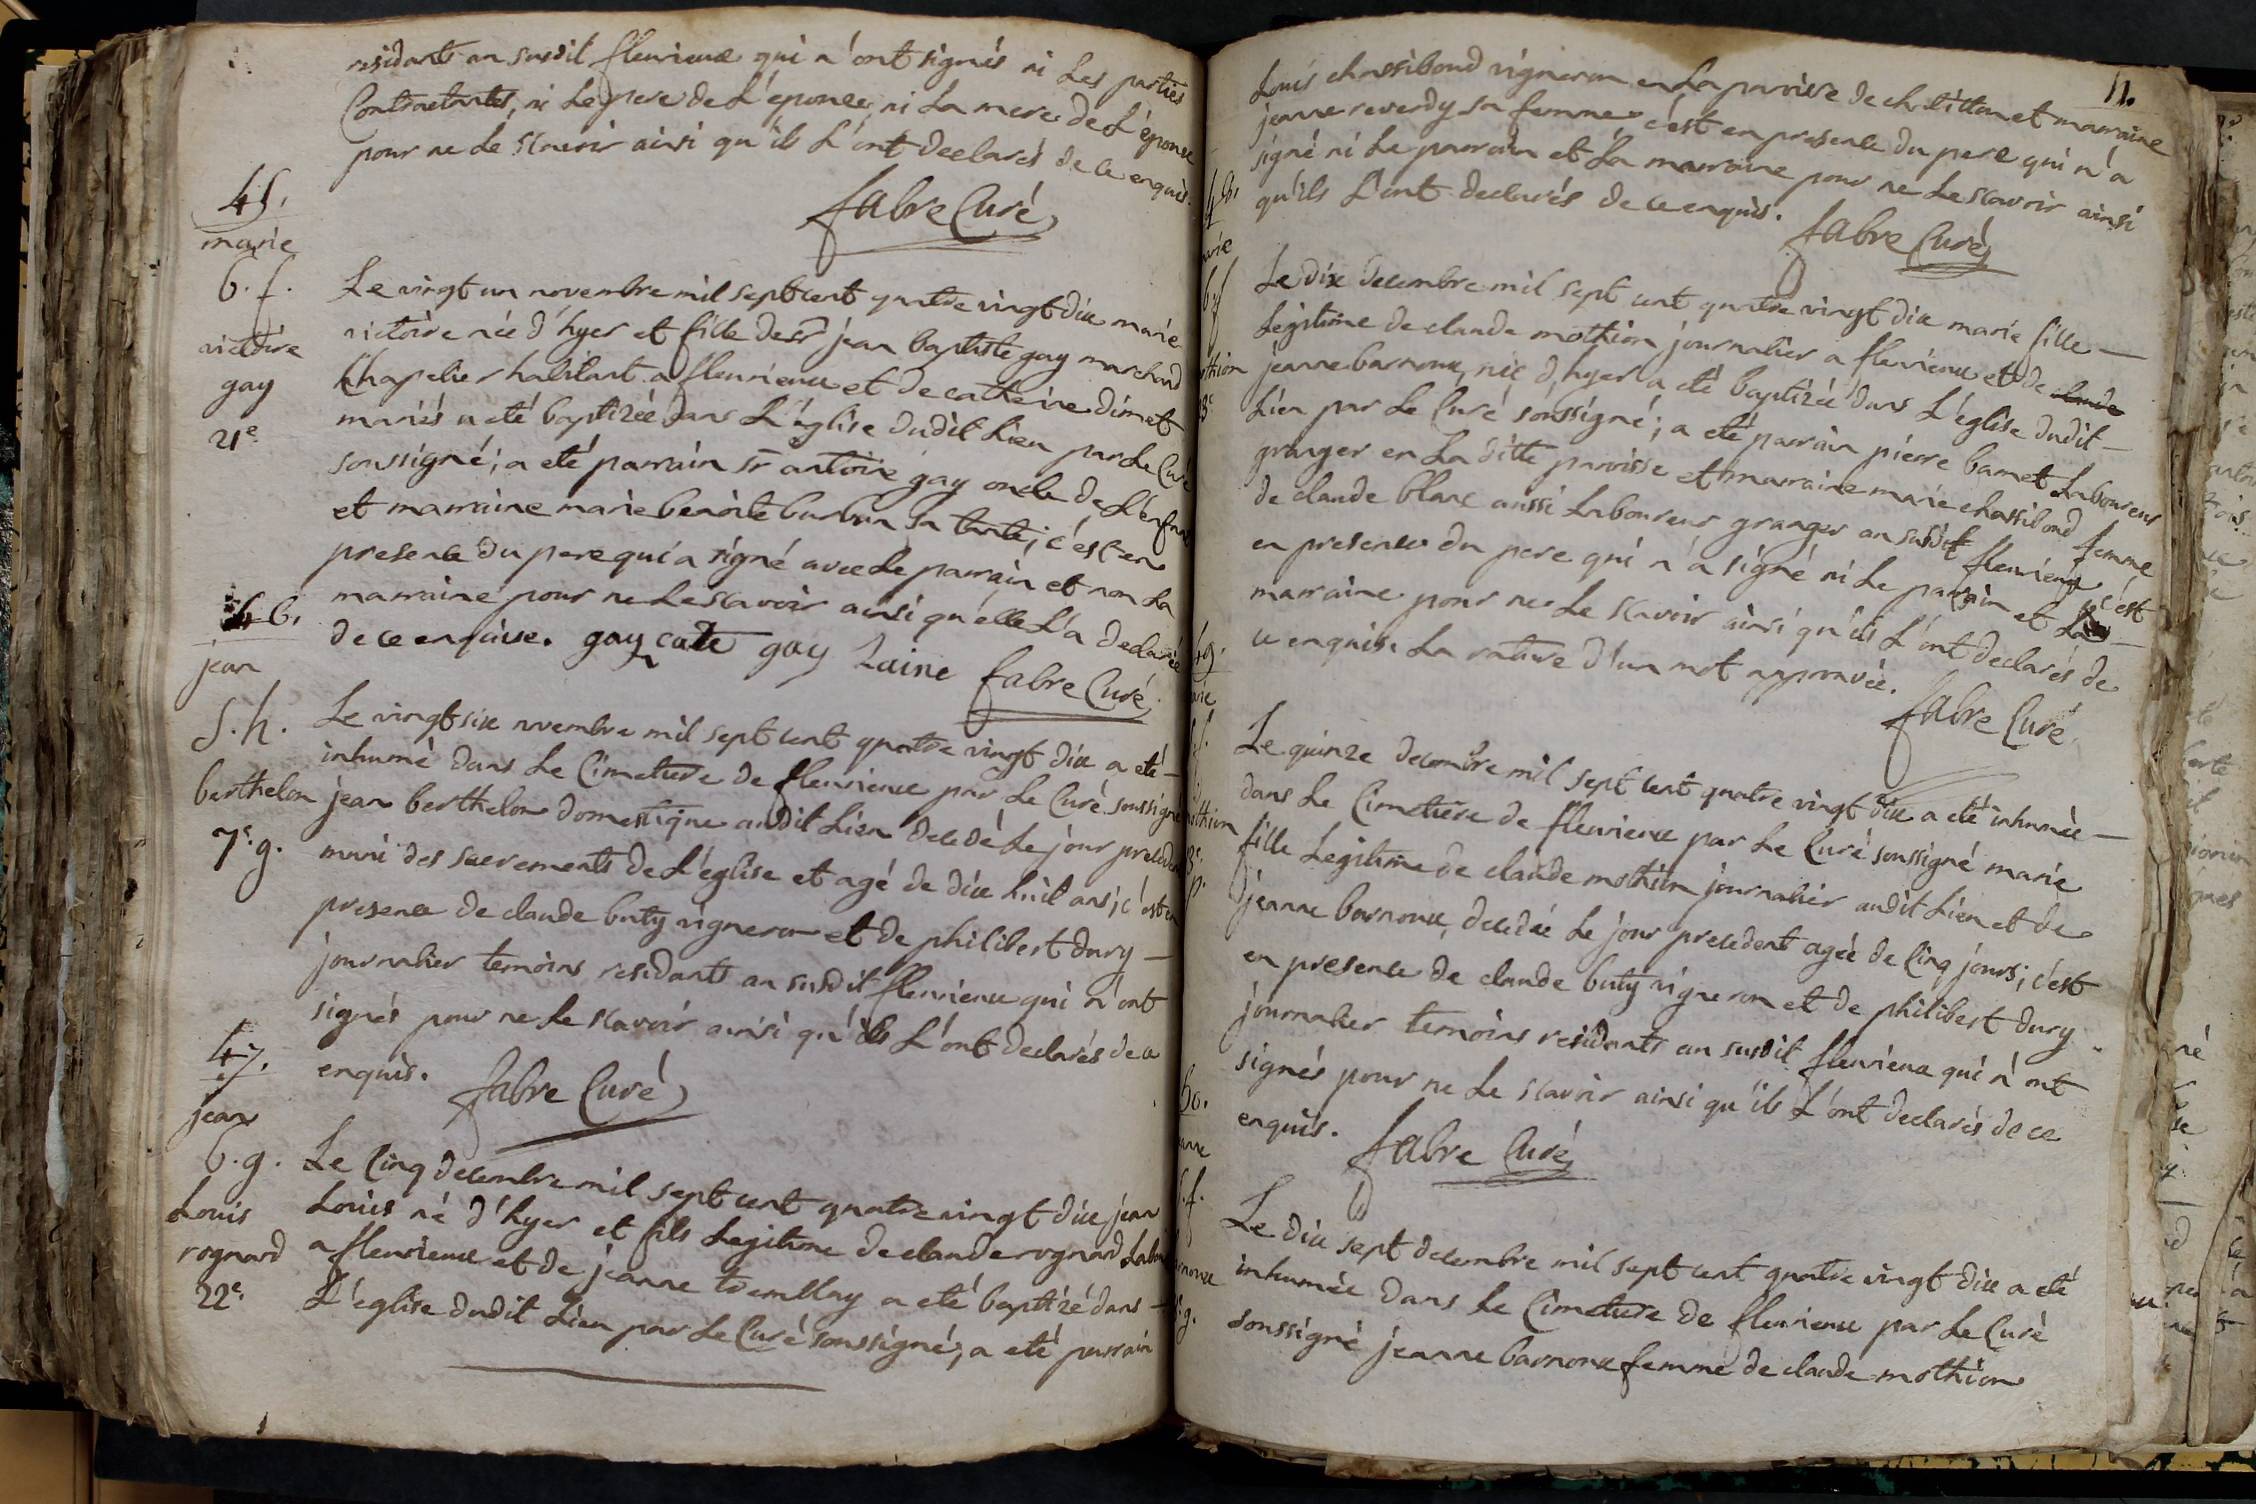 residants au susdit fleurieux qui n'ont signés ni Les parties
Contractantes, ni Le pere de L'epouse, ni La mere de L'epoux
pour ne Le scavoir ainsi qu'ils L'ont declarés de ce enquis.
fabre Curé
45.
marie
b. f.
victoire
gay
21e
Le vingt un novembre mil sept cent quatre vingt dix marie
victoire née d'hyer et fille de sr jean baptiste gay marchand
Chapelier habitant a fleurieux et de catherine dimet
mariés a eté baptizée dans L'église dudit Lieu par Le Curé
soussigné; a eté parrain sr antoine gay oncle de L'enfant
et marraine marie benoite burbun sa tante; c'est en
presence du pere qui a signé avec Le parrain et non La
marraine pour ne Le scavoir ainsi qu'elle L'a declarée
de ce enquise. gay cate gay Laine fabre Curé
46.
jean
s. h.
berthelon
7e. g.
Le vingt six novembre mil sept cent quatre vingt dix a eté
inhumé dans Le Cimetiere de fleurieux par Le Curé soussigné
jean berthelon domestique audit Lieu decedé Le jour precedent
muni des sacrements de L'église et agé de dix huit ans; c'est en
presence de claude buty vigneron et de philibert dury
journalier temoins residants au susdit fleurieux qui n'ont
signés pour ne Le scavoir ainsi qu'ils L'ont declarés de ce
enquis. fabre Curé
47.
jean
b. g.
Louis
rognard
22e.
Le Cinq decembre mil sept cent quatre vingt dix jean
Louis né d'hyer et fils Legitime de claude rognard
a fleurieux et de jeanne tremblay a eté baptizé dans
L'église dudit Lieu par Le Curé soussigné; a eté parrain
11.
Louis chassibond vigneron en La paroisse de chatillon et marraine
jeanne reverdy sa femme c'est en presence du pere qui n'a
signé ni Le parrain et La marraine pour ne Le scavoir ainsi
qu'ils L'ont declarés de ce enquis.
fabre Curé
b f
Le dix decembre mil sept cent quatre vingt dix marie fille
Legitime de claude mothion journalier a fleurieux et de claude
jeanne barnoux, née d'hyer a eté baptizée dans L'église dudit
Lieu par Le Curé soussigné; a eté parrain pierre bamet Laboureur
granger en La ditte paroisse et marraine marie chassibond femme
de claude blanc aussi Laboureur granger au susdit fleurieux c'est
en presence du pere qui n'a signé ni Le parrain et La
marraine pour ne Le scavoir ainsi qu'ils L'ont declarés de
ce enquis. La rature d'un mot approuvée.
fabre Curé
49.
Le quinze decembre mil sept cent quatre vingt dix a eté inhumée
dans Le Cimetiere de fleurieux par Le Curé soussigné marie
fille Legitime de claude mothion journalier audit Lieu et de
jeanne barnoux, decedée Le jour precedent agée de Cinq jours; c'est
en presence de claude buty vigneron et de philibert dury
journalier temoins residants au susdit fleurieux qui n'ont
signés pour ne Le scavoir ainsi qu'ils L'ont declarés de ce
enquis. fabre Curé
50.
Le dix sept decembre mil sept cent quatre vingt dix a eté
inhumée dans Le Cimetiere de fleurieux par Le Curé
soussigné jeanne barnoux femme de claude mothion